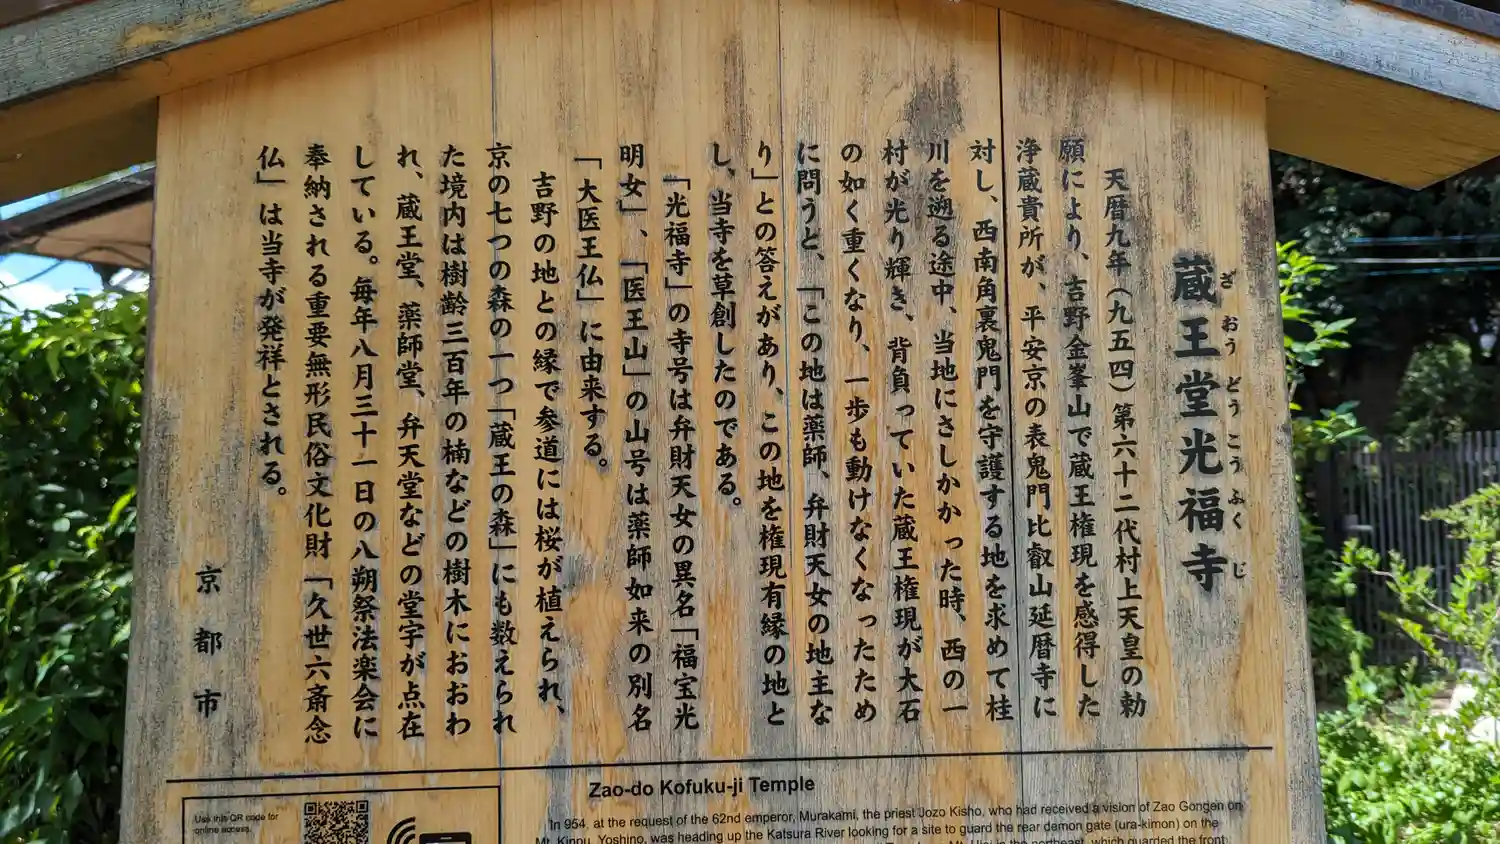 蔵王堂光福寺
ざおうどうこうふくじ
天暦九年（九五四）第六十二代村上天皇の勅
願により、吉野金峯山で蔵王権現を感得した
浄蔵貴所が、平安京の表鬼門比叡山延暦寺に
対し、西南角裏鬼門を守護する地を求めて桂
川を遡る途中、当地にさしかかった時、西の一
村が光り輝き、背負っていた蔵王権現が大石
の如く重くなり、一歩も動けなくなったため
に問うと、「この地は薬師、弁財天女の地主な
り」との答えがあり、この地を権現有縁の地と
し、当寺を草創したのである。
「光福寺」の寺号は弁財天女の異名「福宝光
明女」、「医王山」の山号は薬師如来の別名
「大医王仏」に由来する。
吉野の地との縁で参道には桜が植えられ、
京の七つの森の一つ「蔵王の森」にも数えられ
た境内は樹齢三百年の楠などの樹木におおわ
れ、蔵王堂、薬師堂、弁天堂などの堂宇が点在
している。毎年八月三十一日の八朔祭法楽会に
奉納される重要無形民俗文化財「久世六斎念
仏」は当寺が発祥とされる。
京都市
Zao-do Kofuku-ji Temple
Use this QR code for
online access.
In 954, at the request of the 62nd emperor, Murakami, the priest Jozo Kisho, who had received a vision of Zao Gongen on
Mt. Kinpu, Yoshino, was heading up the Katsura River looking for a site to guard the rear demon gate (ura-kimon) on the
Mt. Hiei in the northeast, which guarded the front